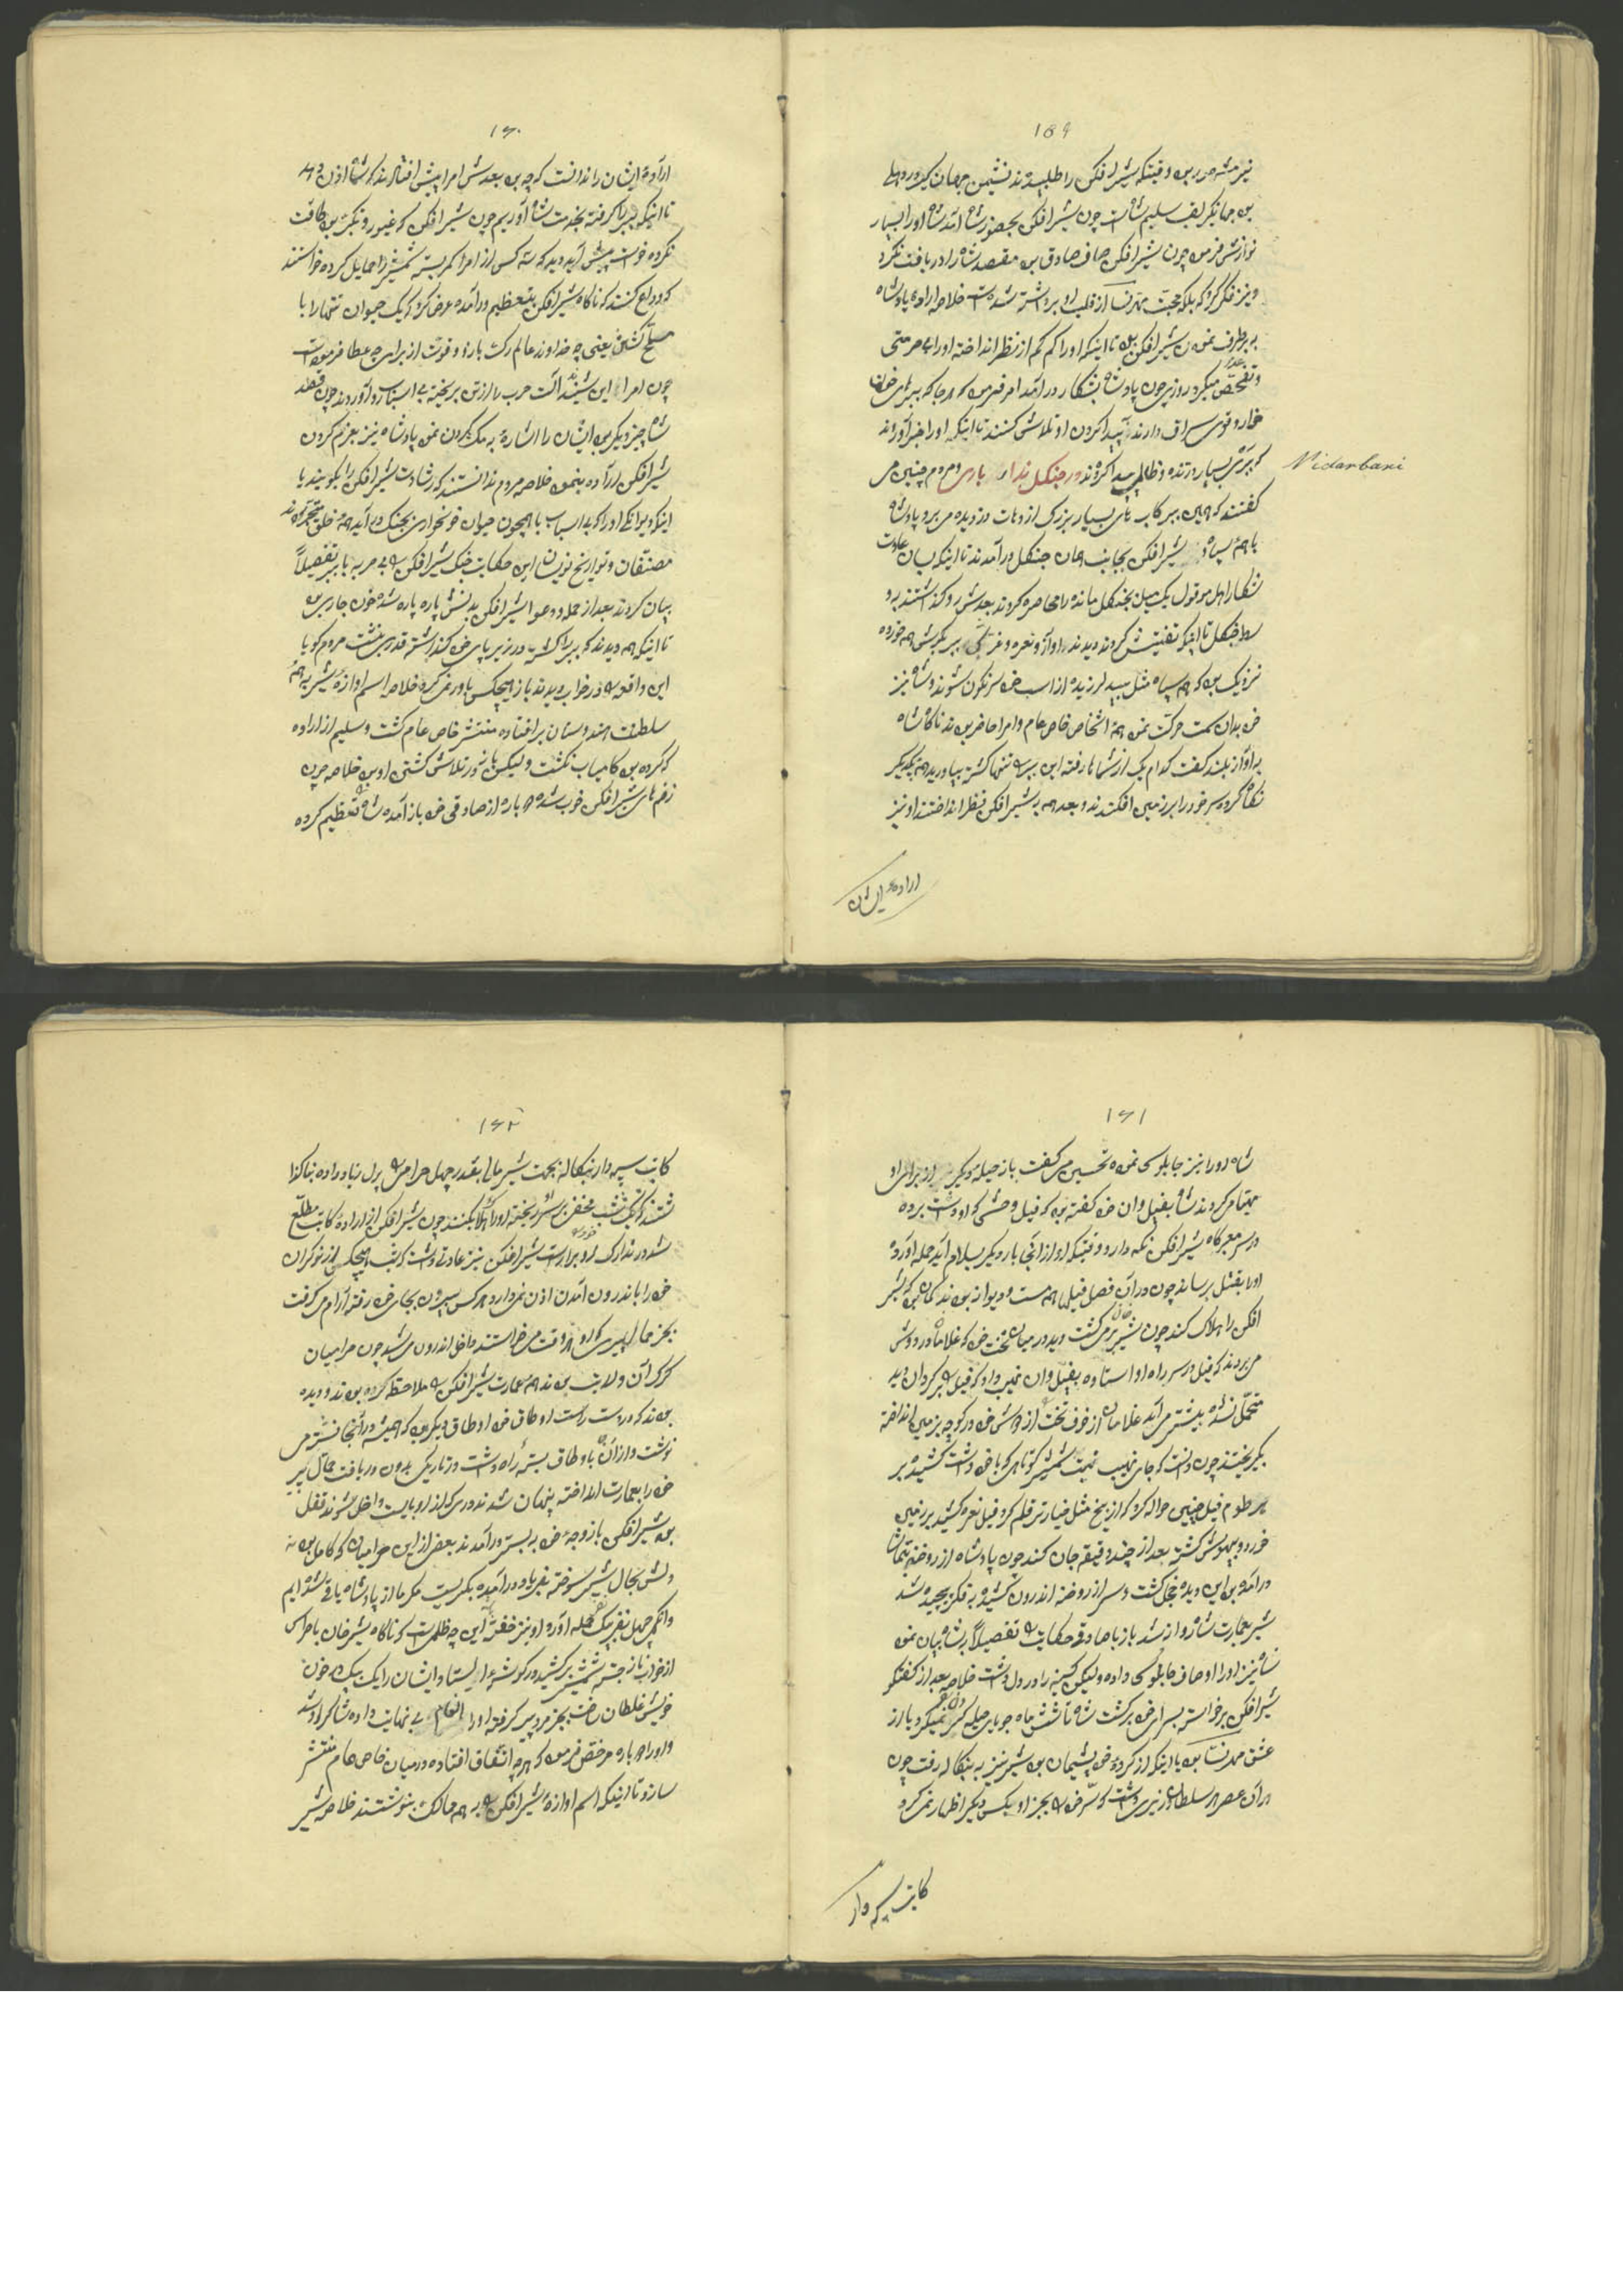 ۱۵۹
نیز مشهور بود وقتیکه شیر افکن را طلبیدند نشیمن جهان کیر در دهلی
بود جهانکیر لقب سلیم شاه است چون شیر افکن بحضور شاه آمد شاه اورا بسیار
نوازش فرمود چون شیر افکن صاف صادق بود مقصد شاه را دریافت نکرد
و نیز فکر کرد که بلکه محبت مهرنسا از قلب او برداشته شده است خلاصه اراده پادشاه
بر طرف نمودن شیر افکن بود تا اینکه اورا کم کم از نظر انداخته اورا بی حرمتی
و تفحص میکرد روزی چون پادشاه بشکار در آمد امر فرمود که هر جا که ببری
دارند پیدا کردن او تلاش کنند تا اینکه اورا خبر آوردند
که ببری بسیار درنده و ظالم پیدا کردند در جنکل ندار باری مردم چنین می
Nidarbari
کفتند که همین ببر کاب های بسیار بزرک از دهات دزدیده می برد پادشاه
با همه سپاه و شیر افکن بجانب همان جنکل در آمدند تا اینکه بسان عادت
شکار اهل موقول یک میل بجنکل مانده را محاصره کردند بعدش رو کذاشتند به
وسط جنکل تا اینکه تفتیش کردند دیدند آواز و نعره و غرش ببر بکوش همه خورده
نزدیک بود که همه سپاه مثل بید لرزیده از اسب خود سرنکون شوند و شاه نیز
خود بدان سمت حرکت نمود همه اشخاص خاص عام و امرا حاضر بودند ناکاه شاه
به آواز بلند کفت کدام یک از شما رفته این ببر را تنها کشته بیاورید همه بیکدیکر
نکاه کرده سر خود را بر زمین افکندند و بعد همه به شیر افکن نظر انداختند او نیز
اراده ایشان
۱۶۰
اراده ایشان را ندانست که چه بود بعدش امرا پیش افتادند که شاها اذن ده
تا اینکه ببر را کرفته بخدمت شاه آوریم چون شیر افکن که غیور و متکبر بود طاقت
نکرده خواست پیش آید دید که سه کس از امرا کمر بسته شمشیر را حمایل کرده خواستند
که وداع کنند که ناکاه شیر افکن بتعظیم در آمده عرض کرد که یک حیوان تنها را با
مسلح کشتن یعنی چه خداوند عالم دست بازو و قوت از برای چه عطا فرموده است
چون امرا این شنیدند آلت حرب را از تن بر یخته بی اسباب رو آوردند چون قصد
شاه چیز دیکر بود ایشان را اشاره به مکث کردن نمود پادشاه نیز بعزم کردن
شیر افکن اراده بنمود خلاصه مردم ندانستند که رشادت شیر افکن را بکویند یا
اینکه دیوانکی اورا که بی اسباب با همچون حیوان خونخواری بجنک در آید همه خلق متحیر بودند
مصنفان و تواریخ نویسان این حکایت جنک شیر افکن را بی حربه با ببر تفصیلاً
بیان کردند بعد از حمله و دعوا شیر افکن بدنش پاره پاره شده خون جاری بود
تا اینکه همه دیدند که ببر را کشته در زیر پای خود کذاشته قدری نشست مردم کویا
این واقعه را در خواب دیدند باز هیچکس باور نمی کرد خلاصه اسم اوازه شیر به همه
سلطنت هندوستان بر افتاده منتشر خاص عام کشت و سلیم از اراده
که کرده بود کامیاب نکشت ولیکن باز در تلاش کشتن او بود خلاصه چون
زخم های شیر افکن خوب شد دوباره از صادقی خود باز آمده شاه را تعظیم کرده
۱۶۱
شاه اورا نیز جابلوسی نموده تحسین می کفت باز حیله دیکر از برای او
مهیا می کردند شاه بفیل وان خود کفته بود که فیل وحشی که او داشت برده
در سر معبرکاه شیر افکن نکه دارد وقتیکه او از آنجا بار دیکر بسلام آید حمله آورده
اورا بقتل برساند چون در آن فصل فیلها همه مست و دیوانه بودند کمان بود که شیر
افکن را هلاک کند چون شیر خان بر می کشت دید در میان تخت خود که غلامان در دوش
می بردند که فیل در سر راه او استاده بفیل وان نهیب داد که فیل را بر کردان دید
متحمل نشده بیشتر می آید غلامان از خوف تخت را از دوش خود در کوچه بزمین انداخته
بکریختند چون دانست که جای نهیب نیست شمشیر کوتاهی که با خود داشت کشیده بر
خرطوم فیل چنین حواله کرد که از بیخ مثل خیار تر قلم کرد فیل نعره کشیده بر زمین
خورد و بیهوش کشته بعد از چند دقیقه جان کند چون پادشاه از روضنه بتماشا
در آمده بود این دیده خجل کشت و سر از روضنه اندرون کشیده به فکر پیچیده شد
شیر بعمارت شاه روانه شد باز با صادقی حکایت را تفصیلاً بر شاه بیان نمود
شاه نیز اورا اوصاف جابلوسی داده ولیکن کینه را در دل داشت خلاصه بعد از کفتکو
شیر افکن برخواسته بسرای خود برکشت شاه تا شش ماه جویای حیله کشتن نمیکرد یا از
عشق مهرنسا بود یا اینکه از کرده خود پشیمان بود شیر نیز به بنکاله رفت چون
در آن عصر هر سلطان وزیری داشت که سر خود را بجز او بکسی دیکر اظهار نمی کرد
کاتب سپه دار
۱۶۲
کاتب سپه دار بنکاله بجهت شیر مالی بقدر چهل حرامی را پول زیاد داده بنا کذا
شتند که یک شب مخفی بر سر او ریخته اورا هلاک بکنند چون شیر افکن از اراده کاتب مطلع
شد در تدارک او برآراست شیر افکن نیز عادتی داشت که شب هیچکس از نوکران
خود را باندرون آمدن اذن نمی داد و هر کس بیرون بجای خود رفته آرام می کرفت
بجز حمال پیری که او هر وقت می خواستند داخل اندرون می شد چون حرامیان
کرک آن ولایت بودند همه عمارت شیر افکن را ملاحظه کرده بودند و دیده
بودند که در دست راست اوطاق خود اوطاق دیکر بود که همیشه در آنجا نشسته می
نوشت و از آن باوطاق بسته راه داشت در تاریکی بدون دریافت حمال پیر
خود را بعمارت انداخته پنهان شدند دری که از او بایست داخل شوند قفل
بود شیر افکن با زوجه خود به بستر در آمدند بعض از این حرامیان که کامل بودند
دلش بحال شیر سوخته بفریاد در آمده بکریست مکر ما از پادشاه یاقی شده ایم
وانکهی چهل نفر بیک نفر حمله آورد او نیز خفته این چه ظلمست که ناکاه شیر خان با حراس
از خواب ناز جسته شمشیر بر کشیده در کوشه ایستاد و ایشان را یک بیک در خون
خویش غلطان ساخت بجز مرد پیر که رفته اورا انعام بی نهایت داده شاکر او شد
و اورا دوباره مرخص فرمود که هر چه اتفاق افتاده در میان خاص عام منتشر
سازد تا اینکه اسم اوازه شیر افکن را بر همه ممالک بنوشتند خلاصه شیر